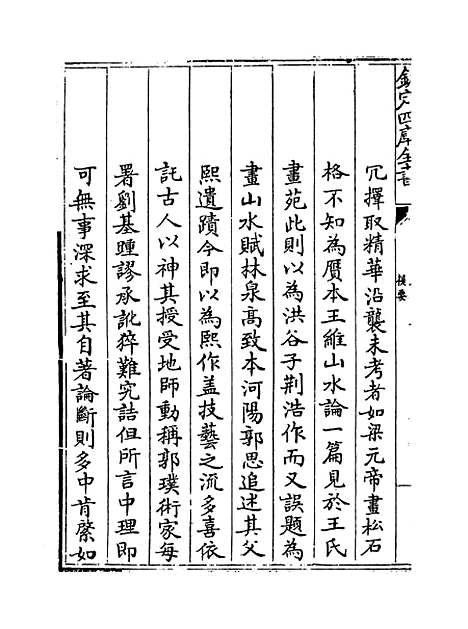 欽定四庫全書
提要
冗擇取精華沿襲未考者如梁元帝畫松石
格不知為贋本王維山水論一篇見於王氏
畫苑此則以為洪谷子荆浩作而又誤題為
畫山水賦林泉髙致本河陽郭思追述其父
熙遺蹟今即以為熙作盖技藝之流多喜依
託古人以神其授受地師動稱郭璞術家每
署劉基踵謬承訛猝難究詰但所言中理即
可無事深求至其自著論斷則多中肯綮如